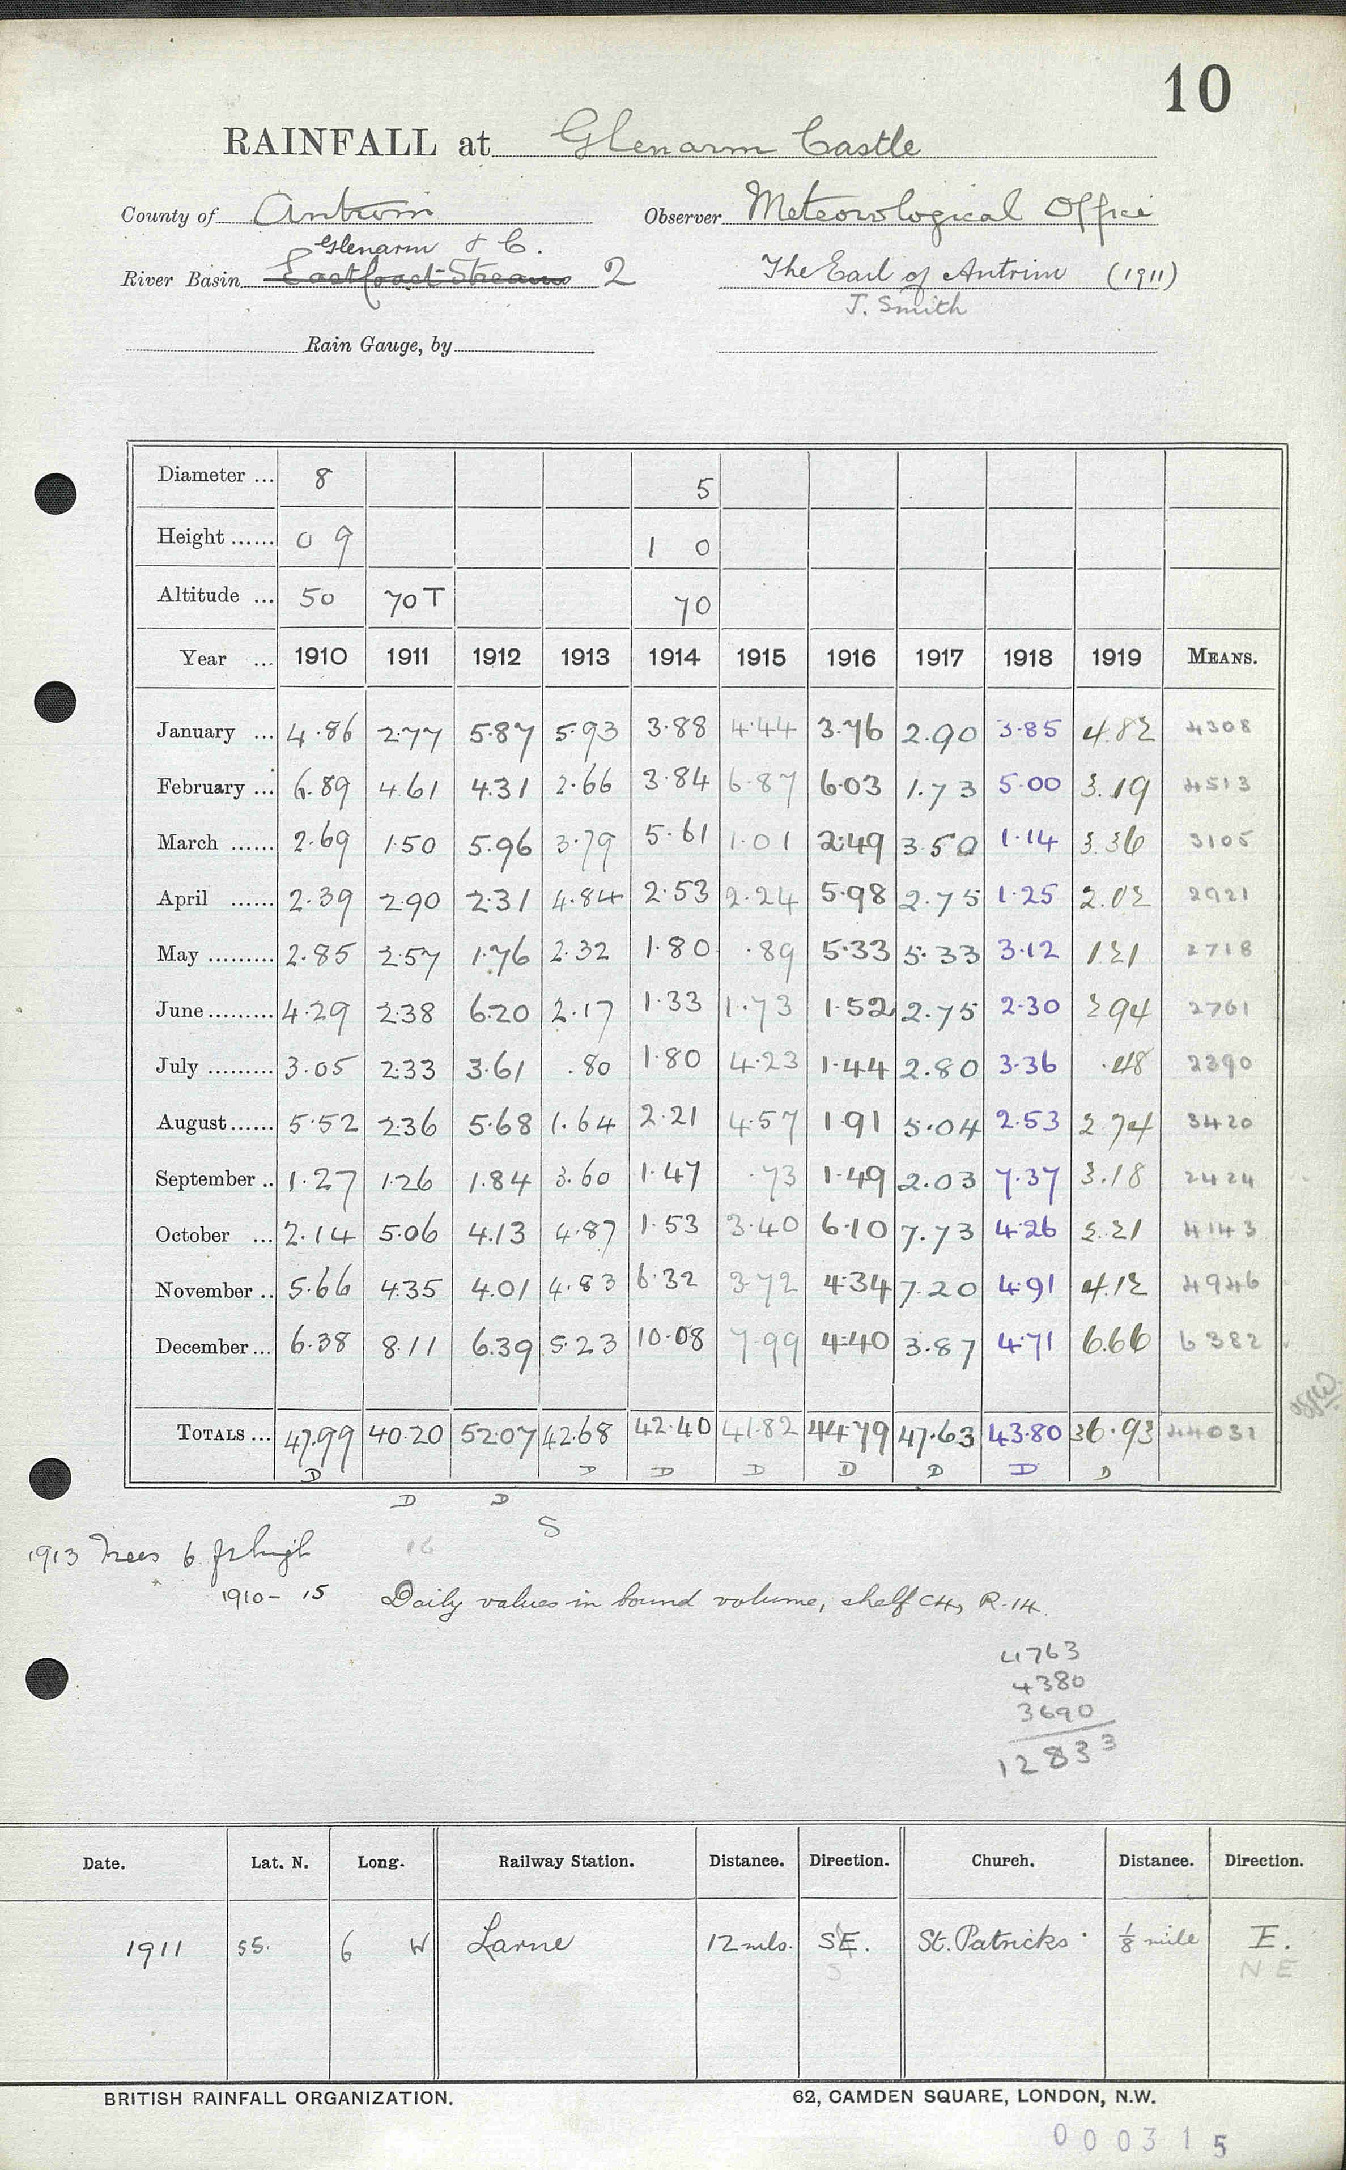 10
RAINFALL at Glenarm Castle
County of Antrim Observer Meteorological Office
Glenarm & C.
River Basin East Coast Streams 2 The Earl of Antrim (1911)
J. Smith
Rain Gauge, by
Diameter ... 8 5
Height ...... 0 9 1 0
Altitude ... 50 70T 70
Year ... 1910 1911 1912 1913 1914 1915 1916 1917 1918 1919 MEANS.
January ... 4.86 2.77 5.87 5.93 3.88 4.44 3.76 2.90 3.85 4.82 4308
February ... 6.89 4.61 4.31 2.66 3.84 6.87 6.03 1.73 5.00 3.19 4513
March ...... 2.69 1.50 5.96 3.79 5.61 1.01 2.49 3.50 1.14 3.36 3105
April ...... 2.39 2.90 2.31 4.84 2.53 2.24 5.98 2.75 1.25 2.02 2921
May ......... 2.85 2.57 1.76 2.32 1.80 .89 5.33 5.33 3.12 1.21 2718
June ......... 4.29 2.38 6.20 2.17 1.33 1.73 1.52 2.75 2.30 2.94 2761
July ......... 3.05 2.33 3.61 .80 1.80 4.23 1.44 2.80 3.36 .48 2390
August ...... 5.52 2.36 5.68 1.64 2.21 4.57 1.91 5.04 2.53 2.74 3420
September .. 1.27 1.26 1.84 3.60 1.47 .73 1.49 2.03 7.37 3.18 2424
October ... 2.14 5.06 4.13 4.87 1.53 3.40 6.10 7.73 4.26 2.21 4143
November .. 5.66 4.35 4.01 4.83 6.32 3.72 4.34 7.20 4.91 4.12 4946
December ... 6.38 8.11 6.39 5.23 10.08 7.99 4.40 3.87 4.71 6.66 6382
TOTALS ... 47.99 40.20 52.07 42.68 42.40 41.82 44.79 47.63 43.80 36.93 44031
D D D D D D D D
D D
S
1913 Trees 6 ft high 16
1910 - 15 Daily values in bound volume, shelf C4, R.14.
4763
4380
3690
12833
Date. Lat. N. Long. Railway Station. Distance. Direction. Church. Distance. Direction.
1911 55. 6 W Larne 12 mls. SE. St. Patricks 1/8 mile E.
S NE
BRITISH RAINFALL ORGANIZATION. 62, CAMDEN SQUARE, LONDON, N.W.
000315